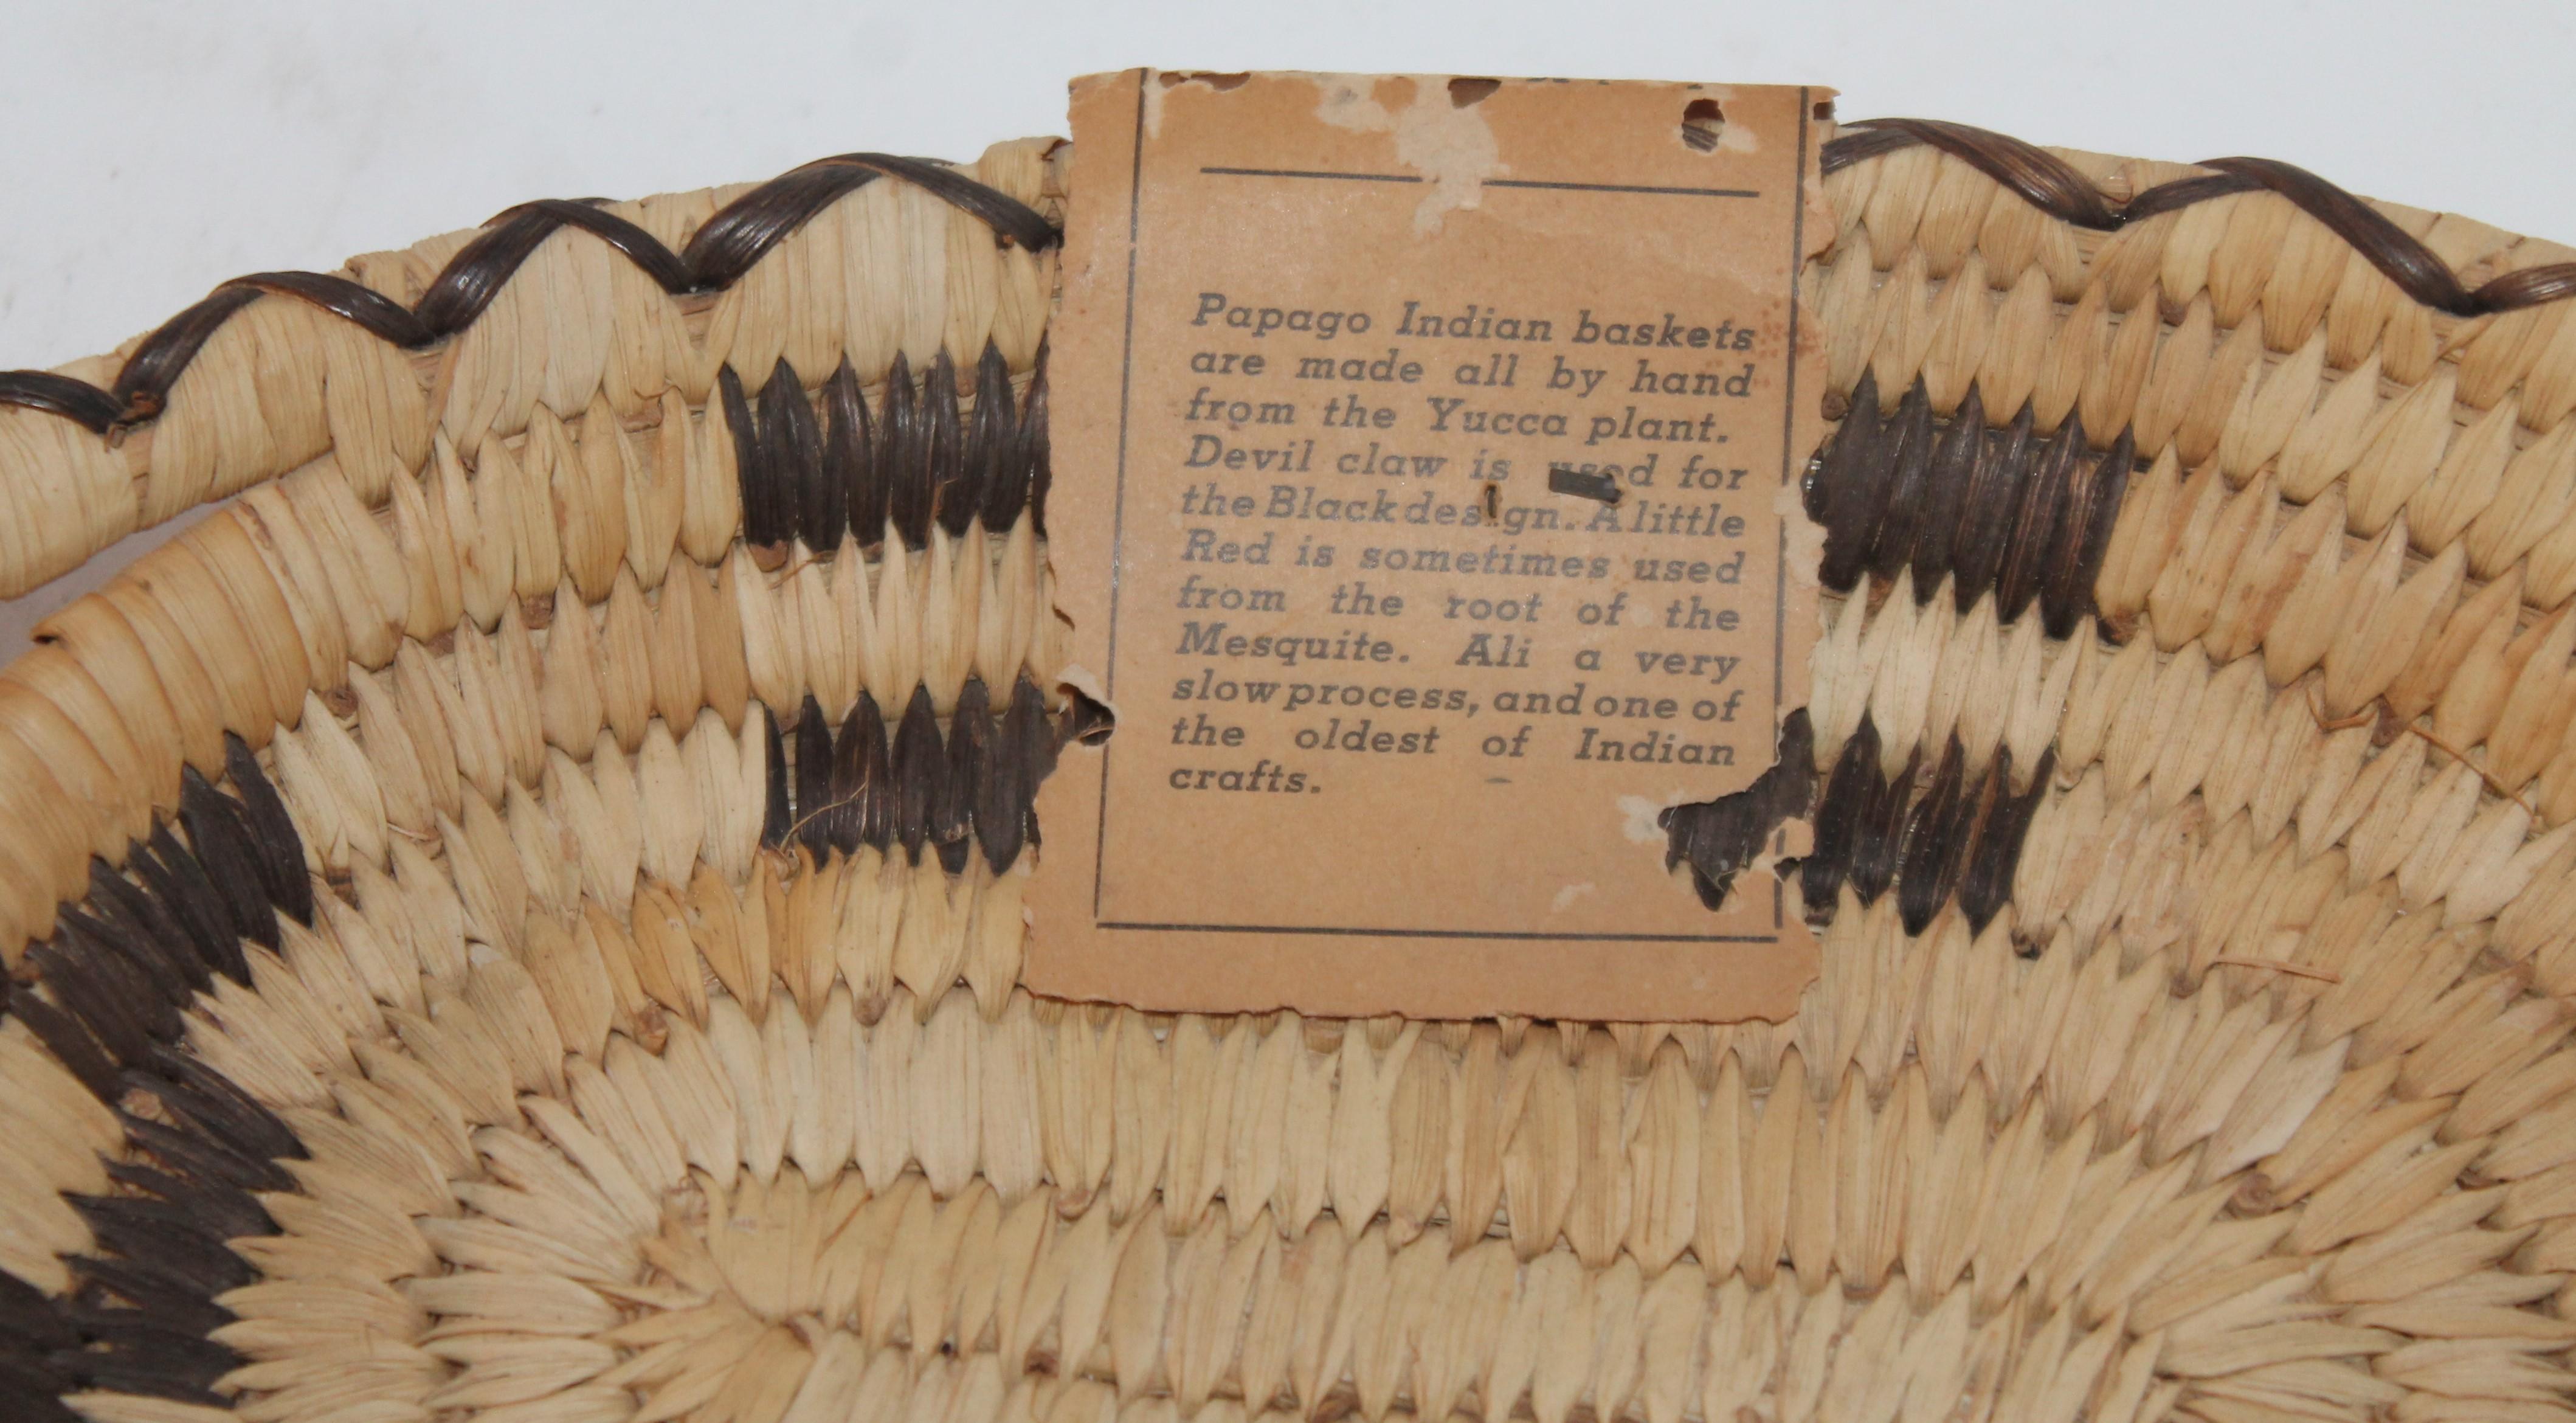 Papago Indian baskets
are made all by hand
from the Yucca plant.
Devil claw is used for
the Black design. A little
Red is sometimes used
from the root of the
Mesquite. All a very
slow process, and one of
the oldest of Indian
crafts.